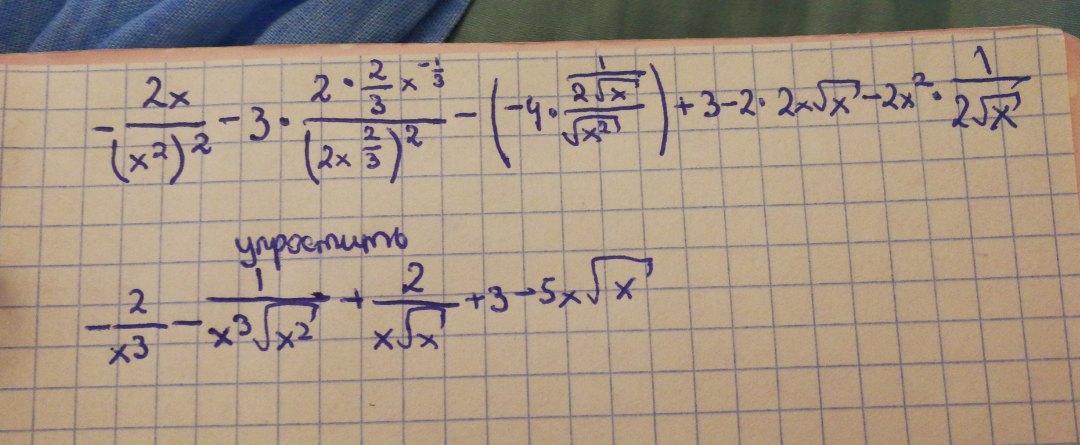 - \frac{2x}{(x^2)^2} - 3 \cdot \frac{2 \cdot \frac{2}{3} x^{-\frac{1}{3}}}{(2x^{\frac{2}{3}})^2} - \left(-4 \cdot \frac{\frac{1}{2\sqrt{x}}}{\sqrt{x^2}}\right) + 3 - 2 \cdot 2x\sqrt{x} - 2x^2 \cdot \frac{1}{2\sqrt{x}}
упростить
- \frac{2}{x^3} - \frac{1}{x^3\sqrt{x^2}} + \frac{2}{x\sqrt{x}} + 3 - 5x\sqrt{x}